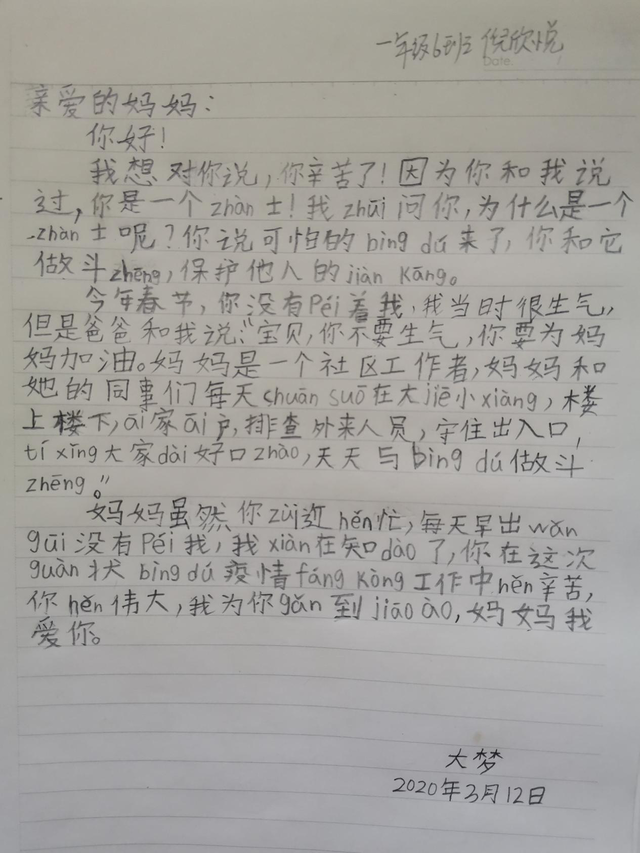 一年级6班 倪欣悦
Date.
亲爱的妈妈：
你好！
我想对你说，你辛苦了！因为你和我说
过，你是一个zhàn士！我zhuī问你，为什么是一个
zhàn士呢？你说可怕的bìng dú来了，你和它
做斗zhēng，保护他人的jiàn Kāng。
今年春节，你没有Péi着我，我当时很生气，
但是爸爸和我说：“宝贝，你不要生气，你要为妈
妈加油。妈妈是一个社区工作者，妈妈和
她的同事们每天chuān suō在大jiē小xiàng，楼
上楼下，āi家āi户，排查外来人员，守住出入口，
tí xǐng大家dài好口zhào，天天与bìng dú做斗
zhēng。”
妈妈虽然你zùi近hěn忙，每天早出wǎn
gūi没有Péi我，我xiàn在知dào了，你在这次
guān状bìng dú疫情fáng Kòng工作中hěn辛苦，
你hěn伟大，我为你gǎn到jiāo ào，妈妈我
爱你。
大梦
2020年3月12日